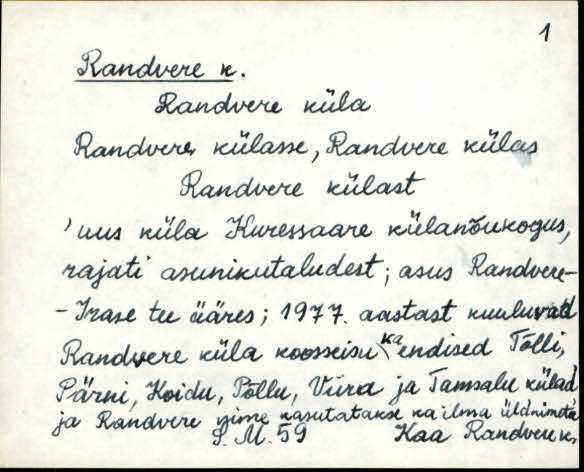 1
Randvere k.
Randvere küla
Randvere külasse, Randvere külas
Randvere külast
'uus küla Kuressaare külanõukogus,
rajati asunikutaludest; asus Randvere-
-Irase tee ääres; 1977. aastast kuuluvad
Randvere küla koosseisu ka endised Tölli,
Pärni, Koidu, Põllu, Viira ja Tamsalu külad,
ja Randvere nime kasutatakse ka ilma üldnimeta
S. M. 59 Kaa Randvere k.